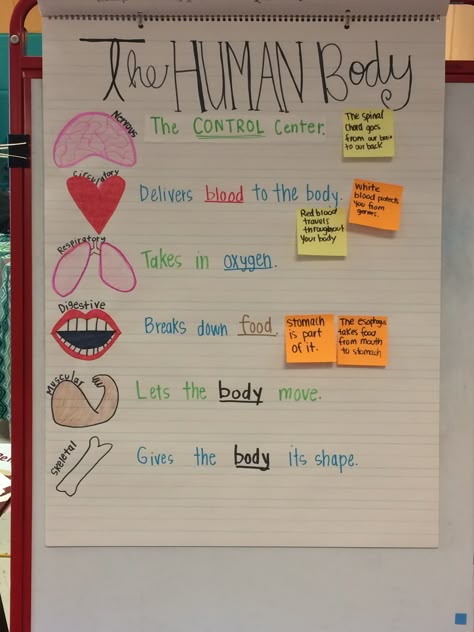 The HUMAN Body
Nervous
The CONTROL Center.
The spinal
Chord goes
from our brain
to our back
Circulatory
Delivers blood to the body.
White
blood protects
you from
germs.
Red blood
travels
throughout
your body
Respiratory
Takes in oxygen.
Digestive
Breaks down food.
Stomach
is part
of it.
The esophagus
takes food
from mouth
to stomach
Muscular
Lets the body move.
Skeletal
Gives the body its shape.